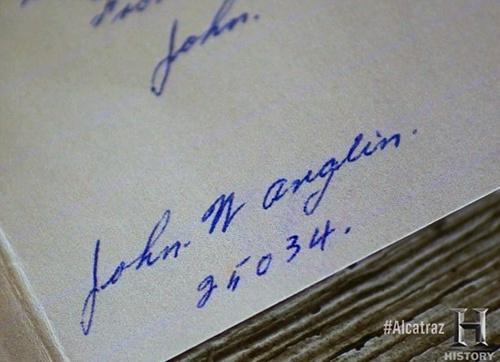 From
John.
John. W Anglin.
25034.
#Alcatraz
H
HISTORY